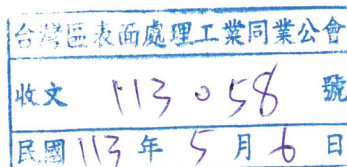 台灣區表面處理工業同業公會
收文 113058 號
民國 113 年 5 月 6 日